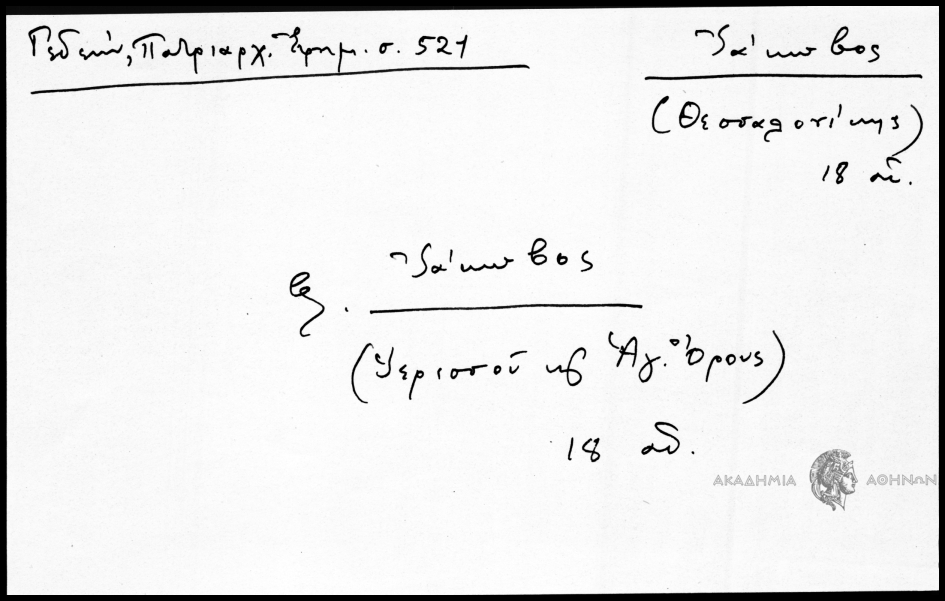 Γεδεών, Πατριαρχ. Ἐφημ. σ. 521
Ἰάκωβος
(Θεσσαλονίκης)
18 αἰ.
βλ. Ἰάκωβος
(Ἱερισσοῦ κ Ἁγ. Ὄρους)
18 αἰ.
ΑΚΑΔΗΜΙΑ ΑΘΗΝΩΝ